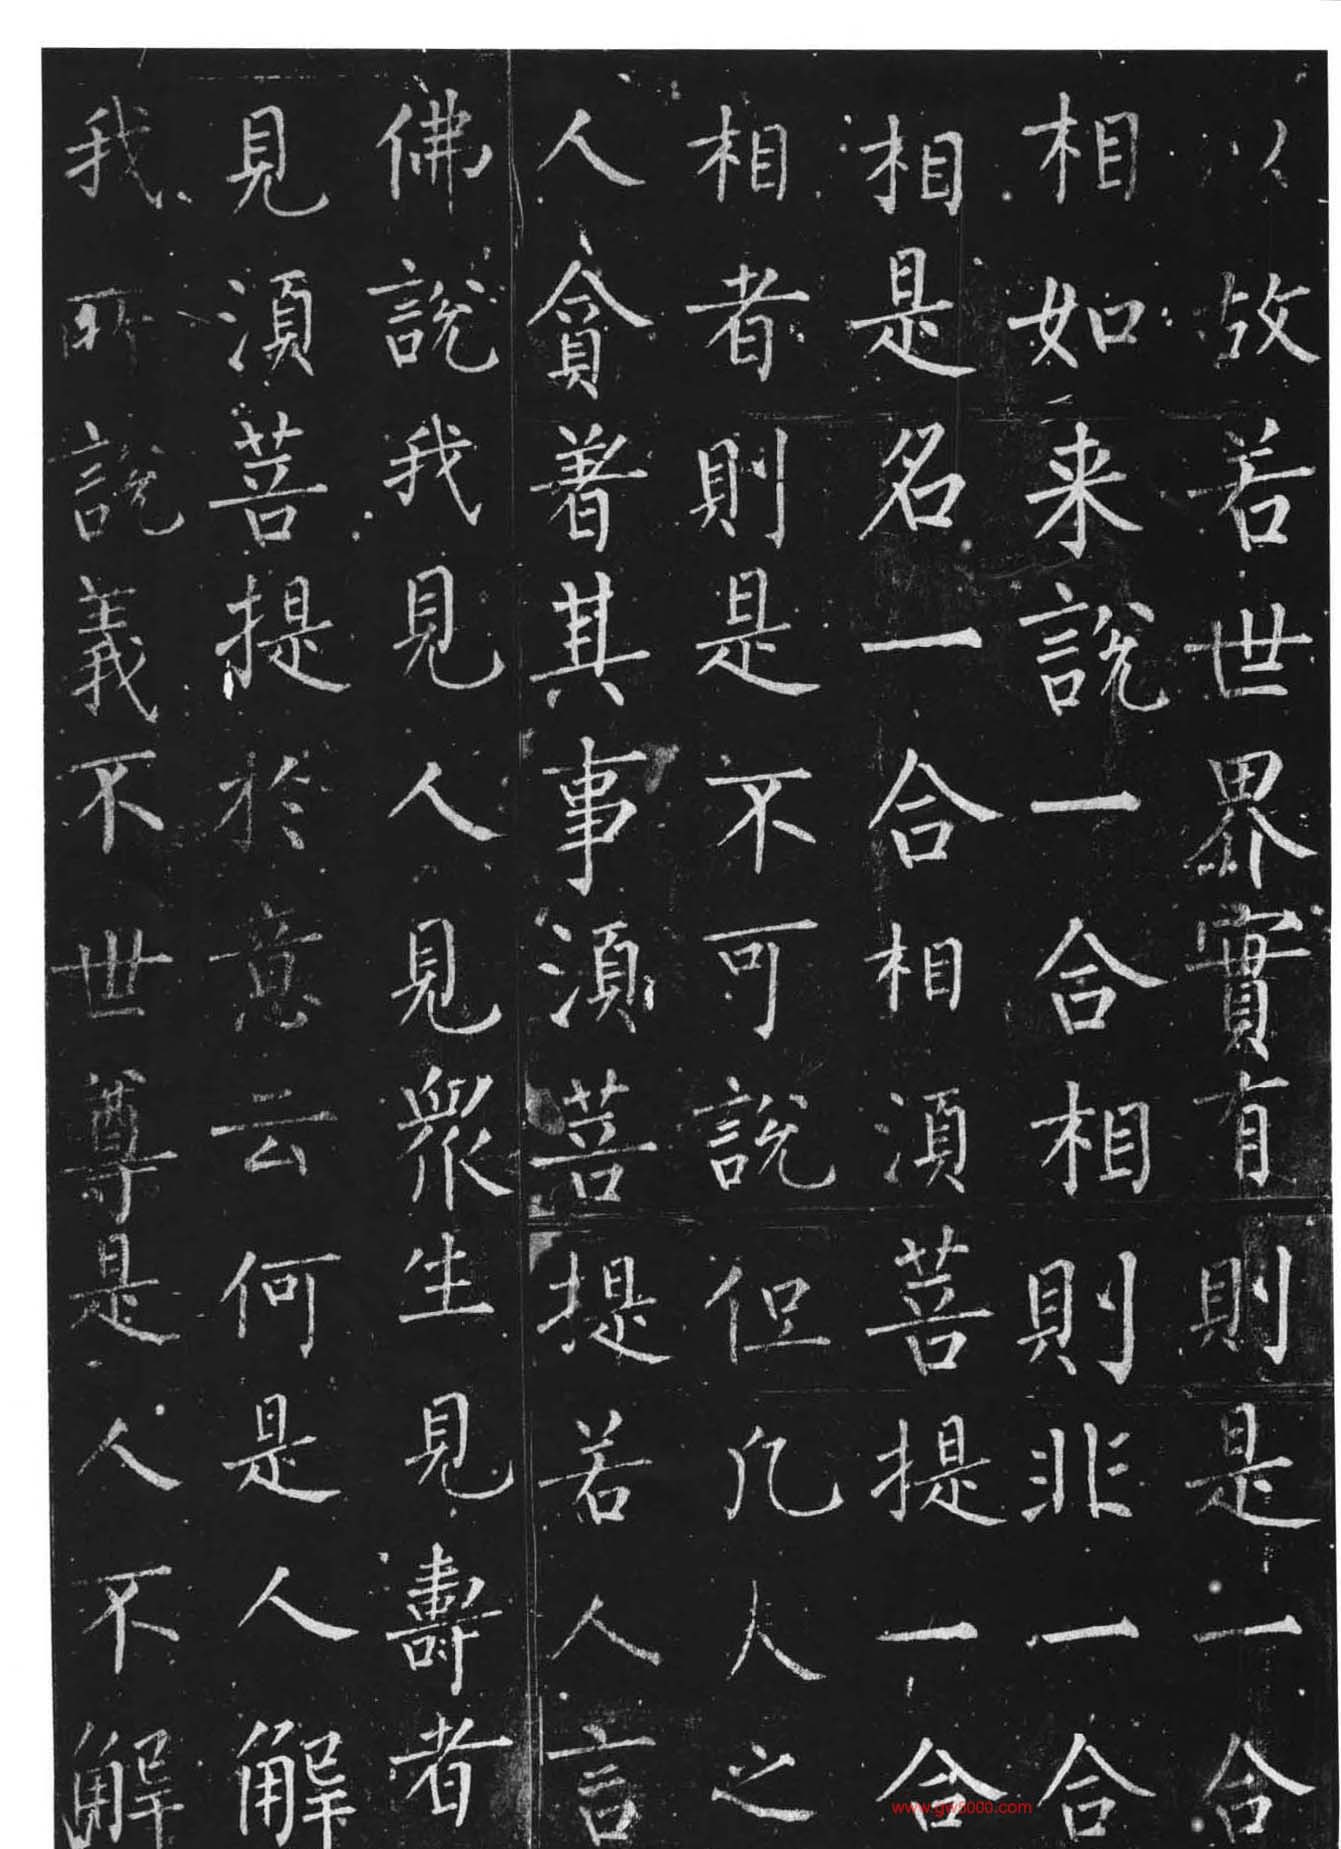 以故若世界實有則是一合
相如来說一合相則非一合
相是名一合相湏菩提一合
相者則是不可說但凡人之
人貪著其事湏菩提若人言
佛說我見人見衆生見壽者
見湏菩提於意云何是人解
我所說義不世尊是人不解
www.gw8000.com